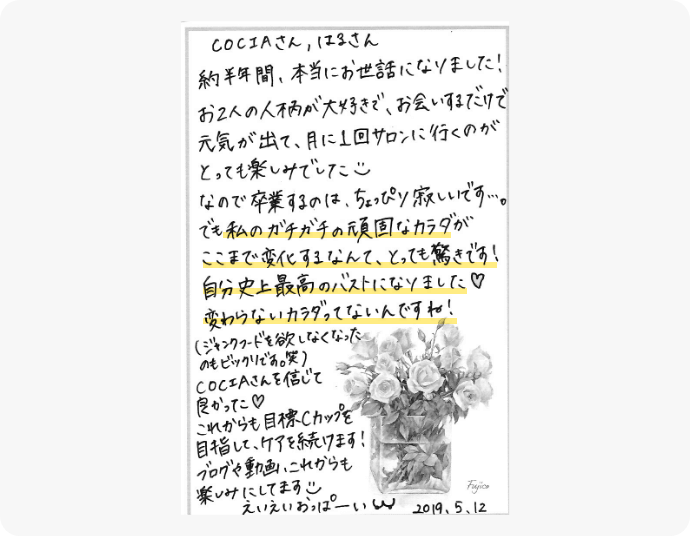 COCIAさん,はるさん
約半年間、本当にお世話になりました!
お2人の人柄が大好きで、お会いするだけで
元気が出て、月に1回サロンに行くのが
とっても楽しみでした
なので卒業するのは、ちょっぴり寂しいです…。
でも私のガチガチの頑固なカラダが
ここまで変化するなんて、とっても驚きです!
自分史上最高のバストになりました♡
変わらないカラダってないんですね!
(ジャンクフードを欲しなくなった
のもビックリです。笑)
COCIAさんを信じて
良かった♡
これからも目標Cカップを
目指して、ケアを続けます!
ブログや動画、これからも
楽しみにしてます
えいえいおっぱーい
Fujico
2019.5.12